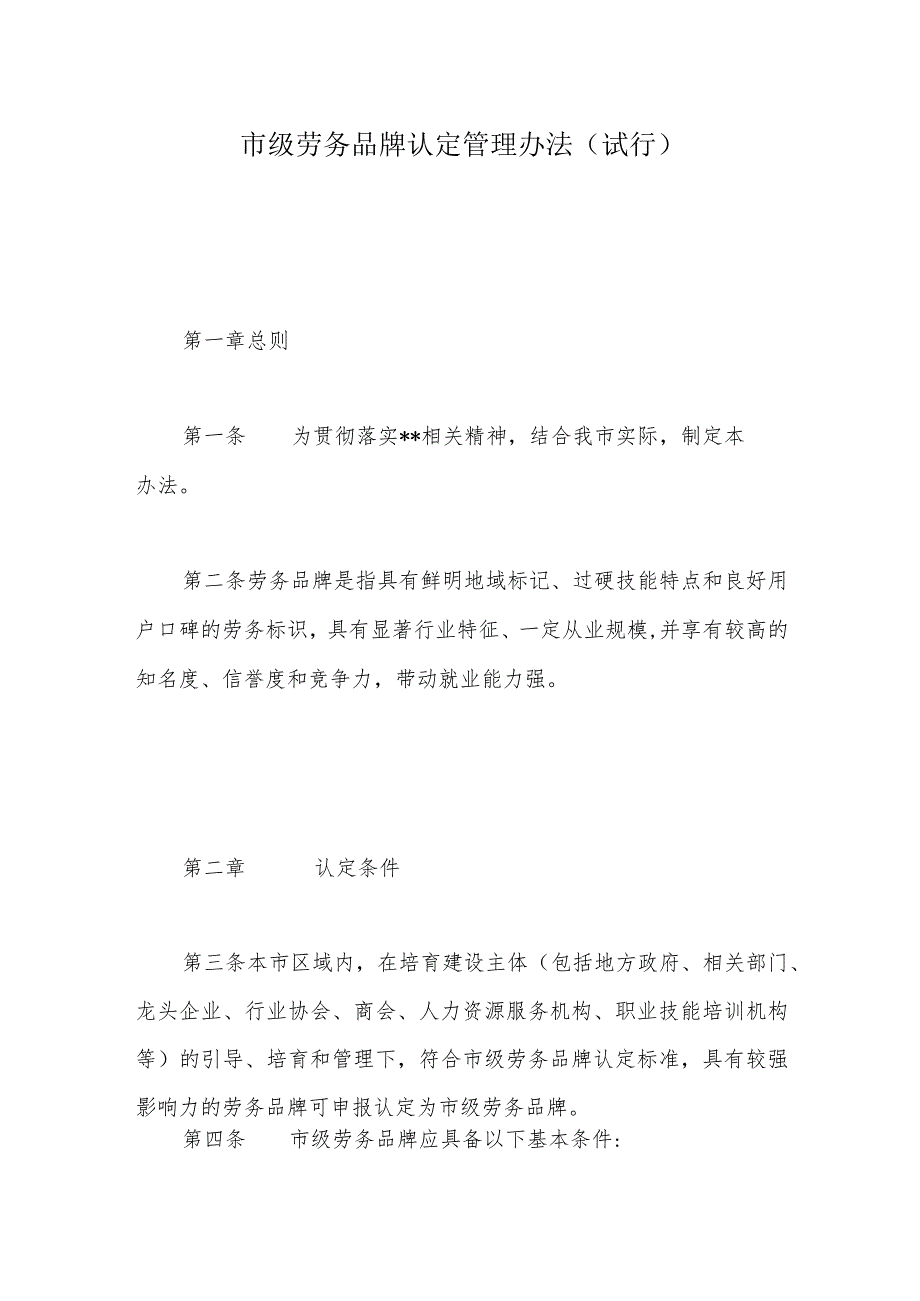 市级劳务品牌认定管理办法（试行）
第一章总则
第一条 为贯彻落实**相关精神，结合我市实际，制定本
办法。
第二条劳务品牌是指具有鲜明地域标记、过硬技能特点和良好用
户口碑的劳务标识，具有显著行业特征、一定从业规模,并享有较高的
知名度、信誉度和竞争力，带动就业能力强。
第二章 认定条件
第三条本市区域内，在培育建设主体（包括地方政府、相关部门、
龙头企业、行业协会、商会、人力资源服务机构、职业技能培训机构
等）的引导、培育和管理下，符合市级劳务品牌认定标准，具有较强
影响力的劳务品牌可申报认定为市级劳务品牌。
第四条 市级劳务品牌应具备以下基本条件: